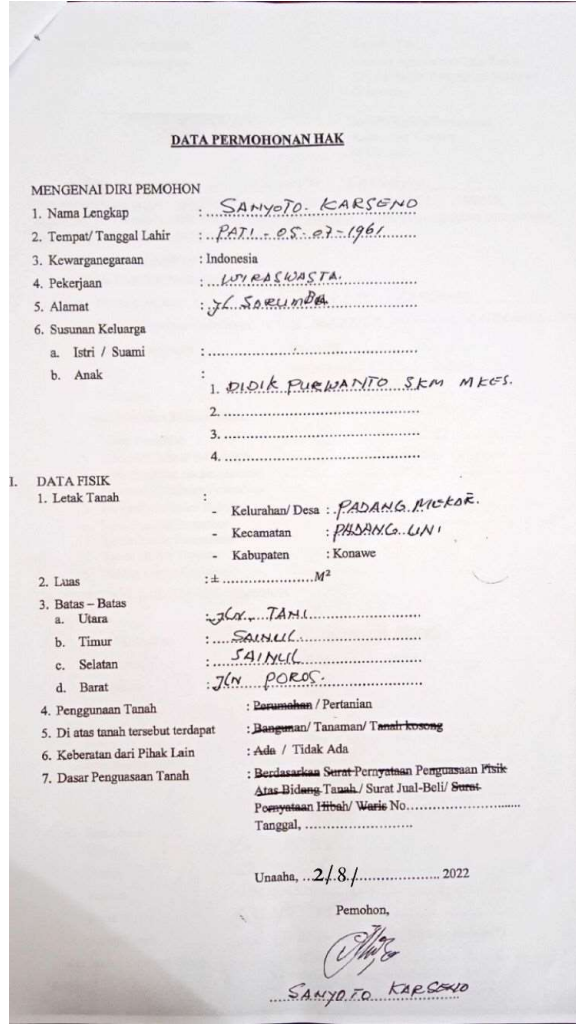 DATA PERMOHONAN HAK
MENGENAI DIRI PEMOHON
1. Nama Lengkap : SANYOTO KARSENO
2. Tempat/ Tanggal Lahir : PATI - 05-07-1961
3. Kewarganegaraan : Indonesia
4. Pekerjaan : WIRASWASTA.
5. Alamat : JL SARUMBA
6. Susunan Keluarga
a. Istri / Suami :
b. Anak :
1. DIDIK PURWANTO SKM MKES.
2.
3.
4.
I. DATA FISIK
1. Letak Tanah :
- Kelurahan/ Desa : PADANG MEKAR.
- Kecamatan : PADANG UNI
- Kabupaten : Konawe
2. Luas : ± M²
3. Batas – Batas
a. Utara : JLN TANI
b. Timur : SAINUL
c. Selatan : SAINUL
d. Barat : JLN POROS.
4. Penggunaan Tanah : Perumahan / Pertanian
5. Di atas tanah tersebut terdapat : Bangunan/ Tanaman/ Tanah kosong
6. Keberatan dari Pihak Lain : Ada / Tidak Ada
7. Dasar Penguasaan Tanah : Berdasarkan Surat Pernyataan Penguasaan Fisik
Atas Bidang Tanah / Surat Jual-Beli/ Surat
Pernyataan Hibah/ Waris No.
Tanggal,
Unaaha, 2/8/ 2022
Pemohon,
SANYOTO KARSENO